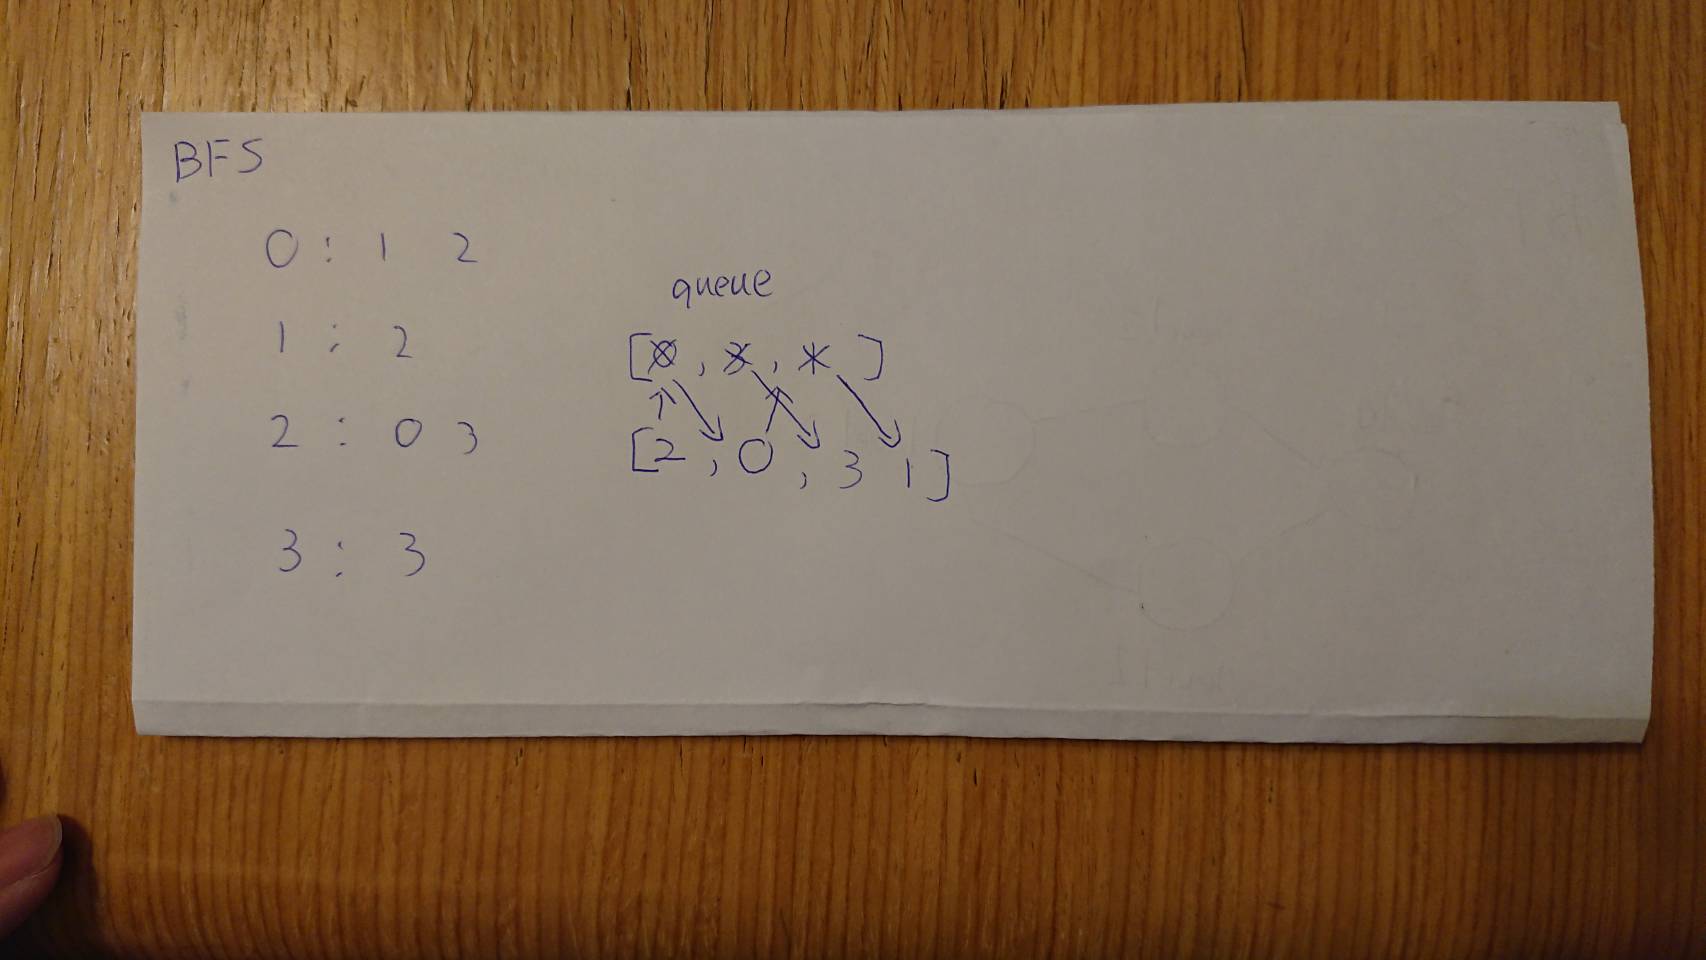 BFS
0 : 1 2
1 : 2
2 : 0 3
3 : 3
queue
[0, 3, ]
[2, 0, 3 1]